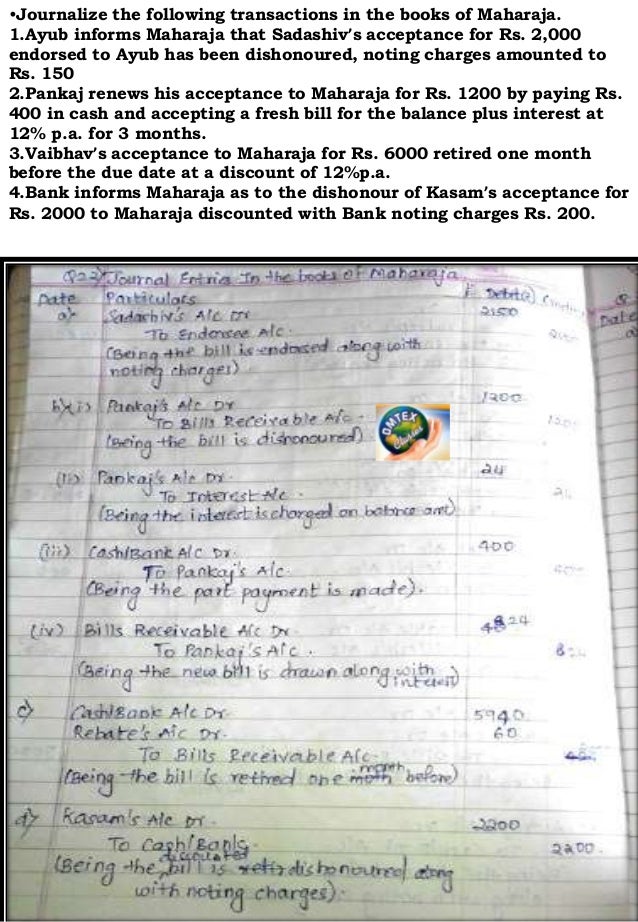 •Journalize the following transactions in the books of Maharaja.
1.Ayub informs Maharaja that Sadashiv's acceptance for Rs. 2,000
endorsed to Ayub has been dishonoured, noting charges amounted to
Rs. 150
2.Pankaj renews his acceptance to Maharaja for Rs. 1200 by paying Rs.
400 in cash and accepting a fresh bill for the balance plus interest at
12% p.a. for 3 months.
3.Vaibhav's acceptance to Maharaja for Rs. 6000 retired one month
before the due date at a discount of 12%p.a.
4.Bank informs Maharaja as to the dishonour of Kasam's acceptance for
Rs. 2000 to Maharaja discounted with Bank noting charges Rs. 200.
Journal Entries In the books of Maharaja
Date Particulars Debit(₹)
a) Sadashiv's A/c Dr 2150
To Endorsee A/c.
(Being the bill is endorsed along with
noting charges)
b) i) Pankaj's A/c Dr 1200
To Bills Receivable A/c.
(Being the bill is dishonoured)
OMTEX
Classes
(ii) Pankaj's A/c Dr. 24
To Interest A/c.
(Being the interest is charged on balance amt)
(iii) Cash/Bank A/c Dr. 400
To Pankaj's A/c.
(Being the part payment is made).
(iv) Bills Receivable A/c Dr. 824
To Pankaj's A/c. 824
(Being the new bill is drawn along with
interest)
c) Cash/Bank A/c Dr. 5940
Rebate's A/c Dr. 60
To Bills Receivable A/c.
(Being the bill is retired one month before)
d) Kasam's A/c Dr. 2200
To Cash/Bank 2200.
(Being the discounted bill is dishonoured along
with noting charges).